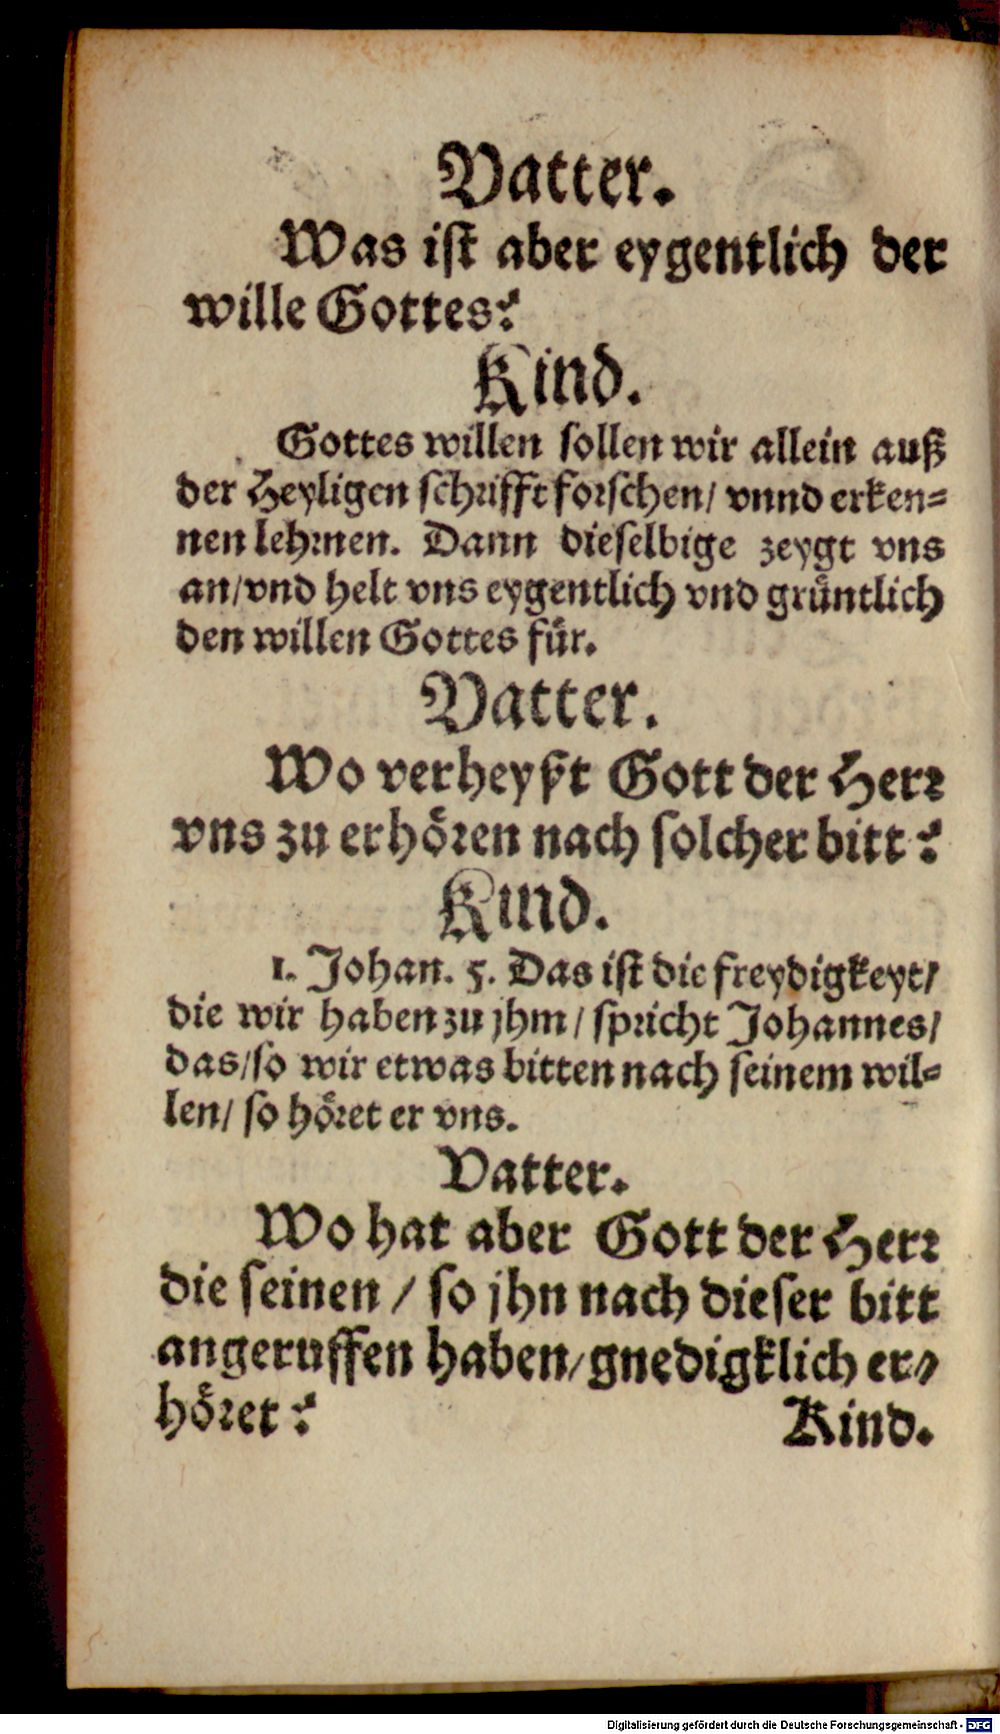 Vatter.
Was ist aber eygentlich der
wille Gottes?
Kind.
Gottes willen sollen wir allein auß
der Heyligen schrifft forschen/ vnnd erken-
nen lehrnen. Dann dieselbige zeygt vns
an/vnd helt vns eygentlich vnd gruͤntlich
den willen Gottes fuͤr.
Vatter.
Wo verheyßt Gott der Herr
vns zu erhoͤren nach solcher bitt?
Kind.
1. Johan. 5. Das ist die freydigkeyt/
die wir haben zu jhm/ spricht Johannes/
das/so wir etwas bitten nach seinem wil-
len/ so hoͤret er vns.
Vatter.
Wo hat aber Gott der Herr
die seinen/ so jhn nach dieser bitt
angeruffen haben/gnedigklich er-
hoͤret?
Kind.
Digitalisierung gefördert durch die Deutsche Forschungsgemeinschaft - DFG